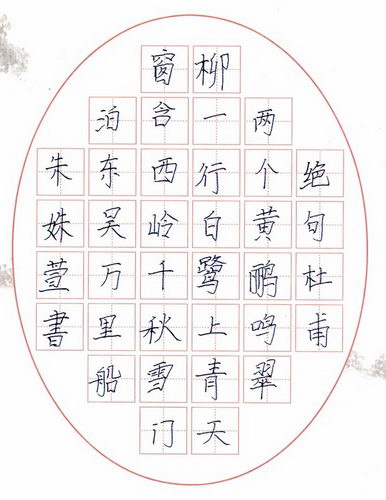 绝句杜甫
两个黄鹂鸣翠
柳一行白鹭上青天
窗含西岭千秋雪门
泊东吴万里船
朱姝萱書